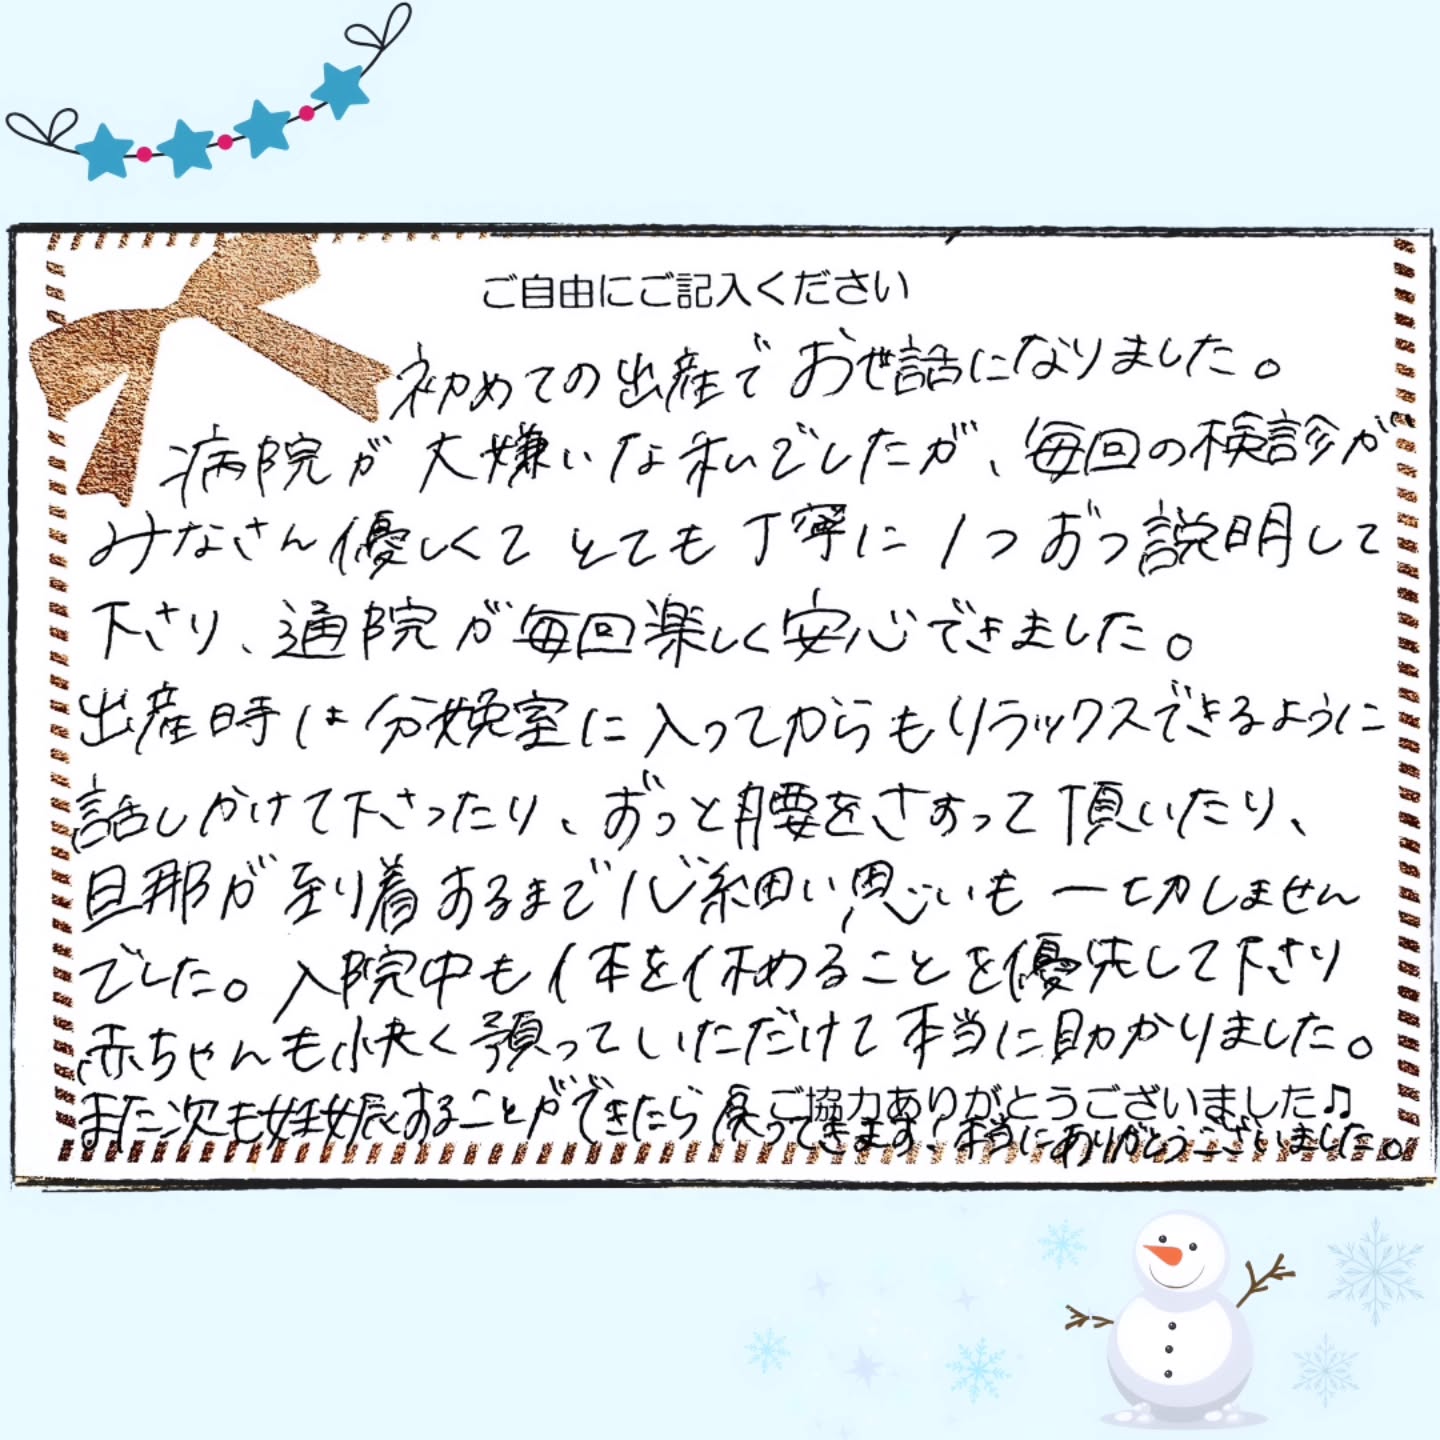 ご自由にご記入ください
初めての出産でお世話になりました。
病院が大嫌いな私でしたが、毎回の検診が
みなさん優しくてとても丁寧に1つずつ説明して
下さり、通院が毎回楽しく安心できました。
出産時は分娩室に入ってからもリラックスできるように
話しかけて下さったり、ずっと腰をさすって頂いたり、
旦那が到着するまで心細い思いも一切しません
でした。入院中も体を休めることを優先して下さり
赤ちゃんも快く預っていただけて本当に助かりました。
また次も妊娠することができたら戻ってきます!本当にありがとうございました。
ご協力ありがとうございました♫